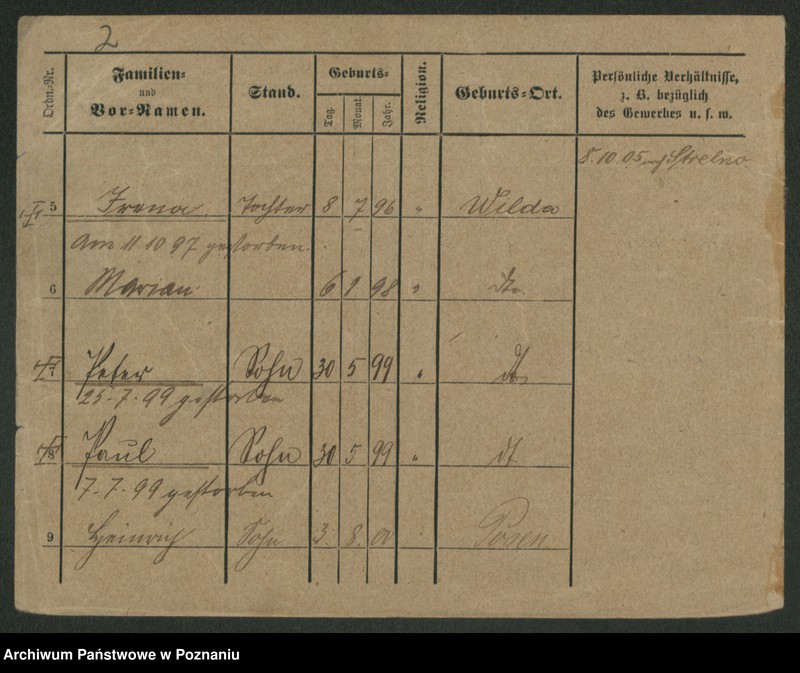 2
Ordn.-Nr. Familien- und Vor-Namen. Stand. Geburts- Tag. Monat. Jahr. Religion. Geburts-Ort. Persönliche Verhältnisse, z. B. bezüglich des Gewerbes u. s. w.
8.10.05 nach Strelno
5 Irena Tochter 8 7 96 " Wilda
Am 11 10 97 gestorben.
6 Marian 6 1 98 " dto
7 Peter Sohn 30 5 99 " dto
25.7.99 gestorben
8 Paul Sohn 30 5 99 " dt
7.7.99 gestorben
9 Heinrich Sohn 3. 8. 00 Posen
Archiwum Państwowe w Poznaniu